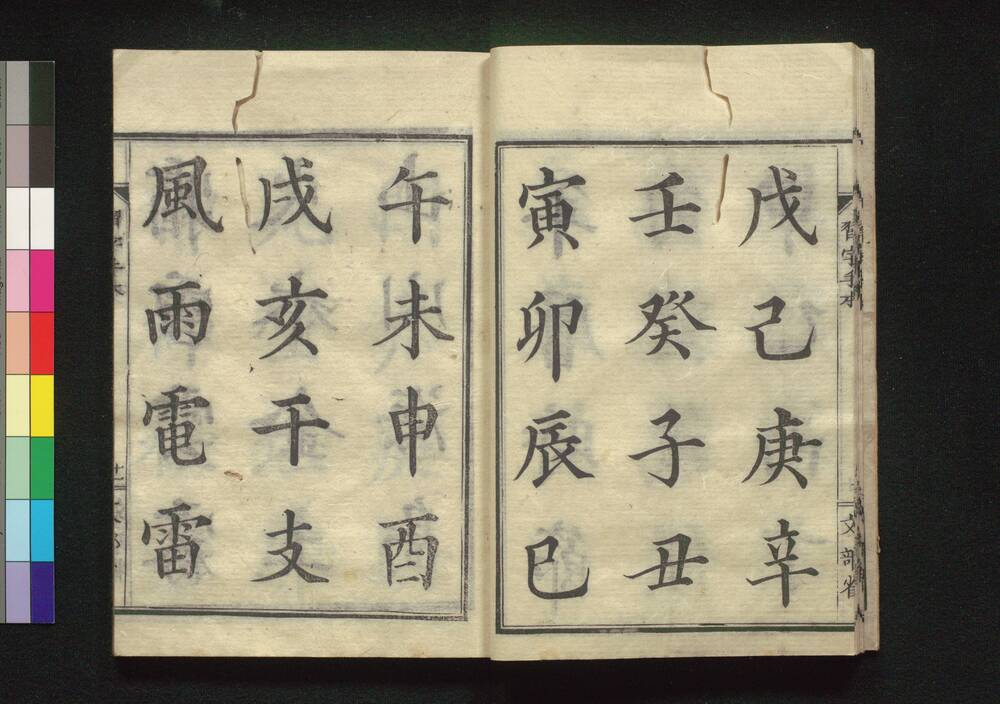 習字手本
文部省
戊己庚辛
壬癸子丑
寅卯辰巳
午未申酉
戌亥干支
風雨電雷
十一